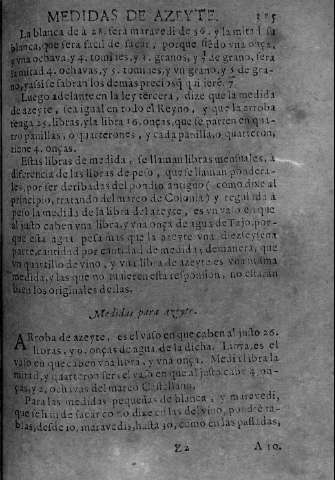 MEDIDAS DE AZEYTE.
La blanca de a 28. sera maravedi de 56. y la mita
blanca, que sera facil de sacar, porque siẽdo vna onça,
y vna ochava, y 4. tomines, y granos, y de grano, sera
la mitad 4. ochavas, y 5. tomines, y vn grano, y de gra-
no, y assi se sabran los demas precios
Luego adelante en la ley tercera, dize que la medida
de azeyte, sea igual en todo el Reyno, y que la arroba
tenga 25. libras, y la libra 16. onças, que se parten en qua-
tro panillas, o quarterones, y cada panilla, o quarteron,
tiene 4. onças.
Estas libras de medida, se llaman libras mensuales, a
diferencia de las libras de peso, que se llaman pondera-
les, por ser deribadas del pondio antiguo (como dixe al
principio, tratando del marco de Colonia) y
peso la medida de la libra del azeyte, es vn vaso en que
al justo caben vna libra, y vna onça de agua de Tajo, por-
que esta agua pesa mas que la azeyte vna diezysiena
parte, cantidad por cantidad de medida; demanera, que
vn quartillo de vino, y vna libra de azeyte es vna misma
medida, y las que no tuvieren esta responsion, no estarán
bien los originales dellas.
Medidas para azeyte.
ARroba de azeyte, es el vaso en que caben al justo 26.
libras, y 9. onças de agua de la dicha. Libra, es el
vaso en que caben vna libra, y vna onça. Media libra la
mitad, y quarteron sera el vaso en que al justo cabe 4. on-
ças, y 2. ochavas del marco Castellano.
Para las medidas pequeñas de blanca, y maravedi,
que se han de sacar como dixe en las del vino, pondrè ta-
blas, desde 10. maravedis, hasta 30. como en las passadas,
Z2 A 10.